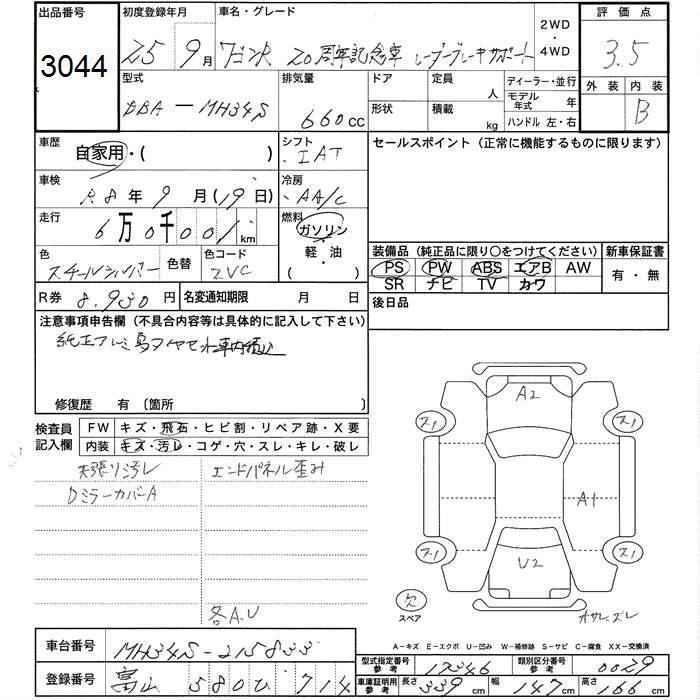 出品番号 初度登録年月 車名・グレード 2WD・4WD 評価点
3044 25年 9月 ワゴンR 20周年記念車 レーダーブレーキサポート 3.5
型式 排気量 ドア 定員 人 ディーラー・並行 外装 内装
DBA－MH34S 660cc 形状 積載 kg モデル年式 年 B
ハンドル 左・右
車歴 自家用・( ) シフト IAT セールスポイント（正常に機能するものに限ります）
車検 R8年 9月(19日) 冷房 AA/C
走行 6万0千00 km 燃料 ガソリン・軽・油 ( )
装備品（純正品に限り○をつけてください） 新車保証書
色 スチールシルバー 色替 色コード ZVC PS PW ABS エアB AW 有・無
SR ナビ TV カワ
R券 8,930円 名変通知期限 月 日 後日品
注意事項申告欄（不具合内容等は具体的に記入して下さい）
修復歴 有 〔箇所 〕
検査員記入欄 FW キズ・飛石・ヒビ割・リペア跡・X要
内装 キズ・汚レ・コゲ・穴・スレ・キレ・破レ
天張り汚レ エンドパネル歪み
DミラーカバーA
各A.U
A2
ス1 ス1
A1
ス1 ス1
U2
欠
スペア
A－キズ E－エクボ U－凹み W－補修跡 S－サビ C－腐食 XX－交換済
車台番号 MH34S-215833 型式指定番号 参考 17346 類別区分番号 参考 0029
登録番号 富山 580 ひ 714 車庫証明用 参考 長さ 339cm 幅 147cm 高さ 166cm